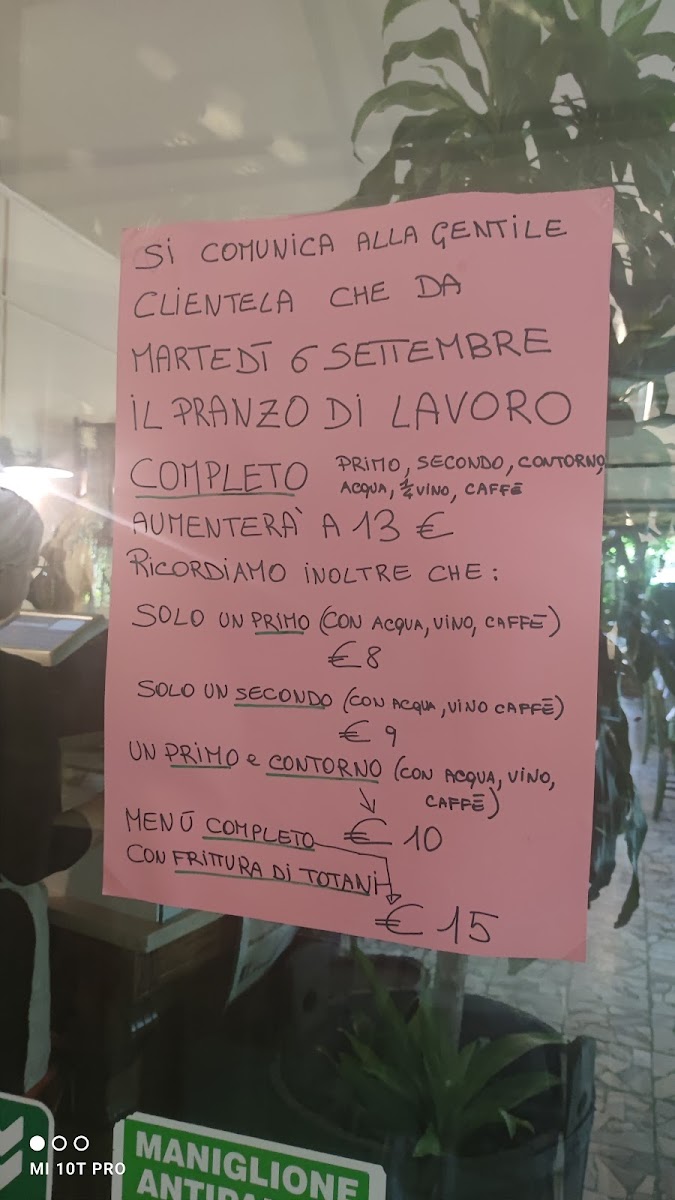 SI COMUNICA ALLA GENTILE
CLIENTELA CHE DA
MARTEDÌ 6 SETTEMBRE
IL PRANZO DI LAVORO
COMPLETO PRIMO, SECONDO, CONTORNO,
ACQUA, ¼ VINO, CAFFÈ
AUMENTERÀ A 13 €
RICORDIAMO INOLTRE CHE:
SOLO UN PRIMO (CON ACQUA, VINO, CAFFÈ)
€ 8
SOLO UN SECONDO (CON ACQUA, VINO CAFFÈ)
€ 9
UN PRIMO e CONTORNO (CON ACQUA, VINO,
CAFFÈ)
€ 10
MENÙ COMPLETO
CON FRITTURA DI TOTANI
€ 15
MANIGLIONE
MI 10T PRO